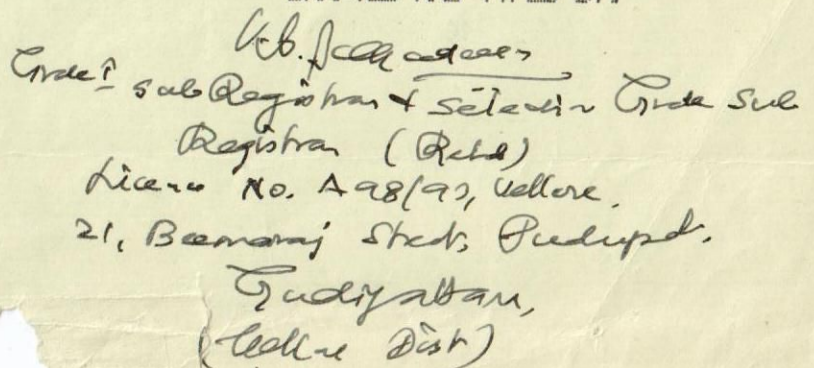 Grade I Sub Registrar & Selection Grade Sub
Registrar (Retd)
Licence No. A 98/97, Vellore.
21, Beemaraj Street, Pudupet,
Gudiyattam,
(Vellore Dist)